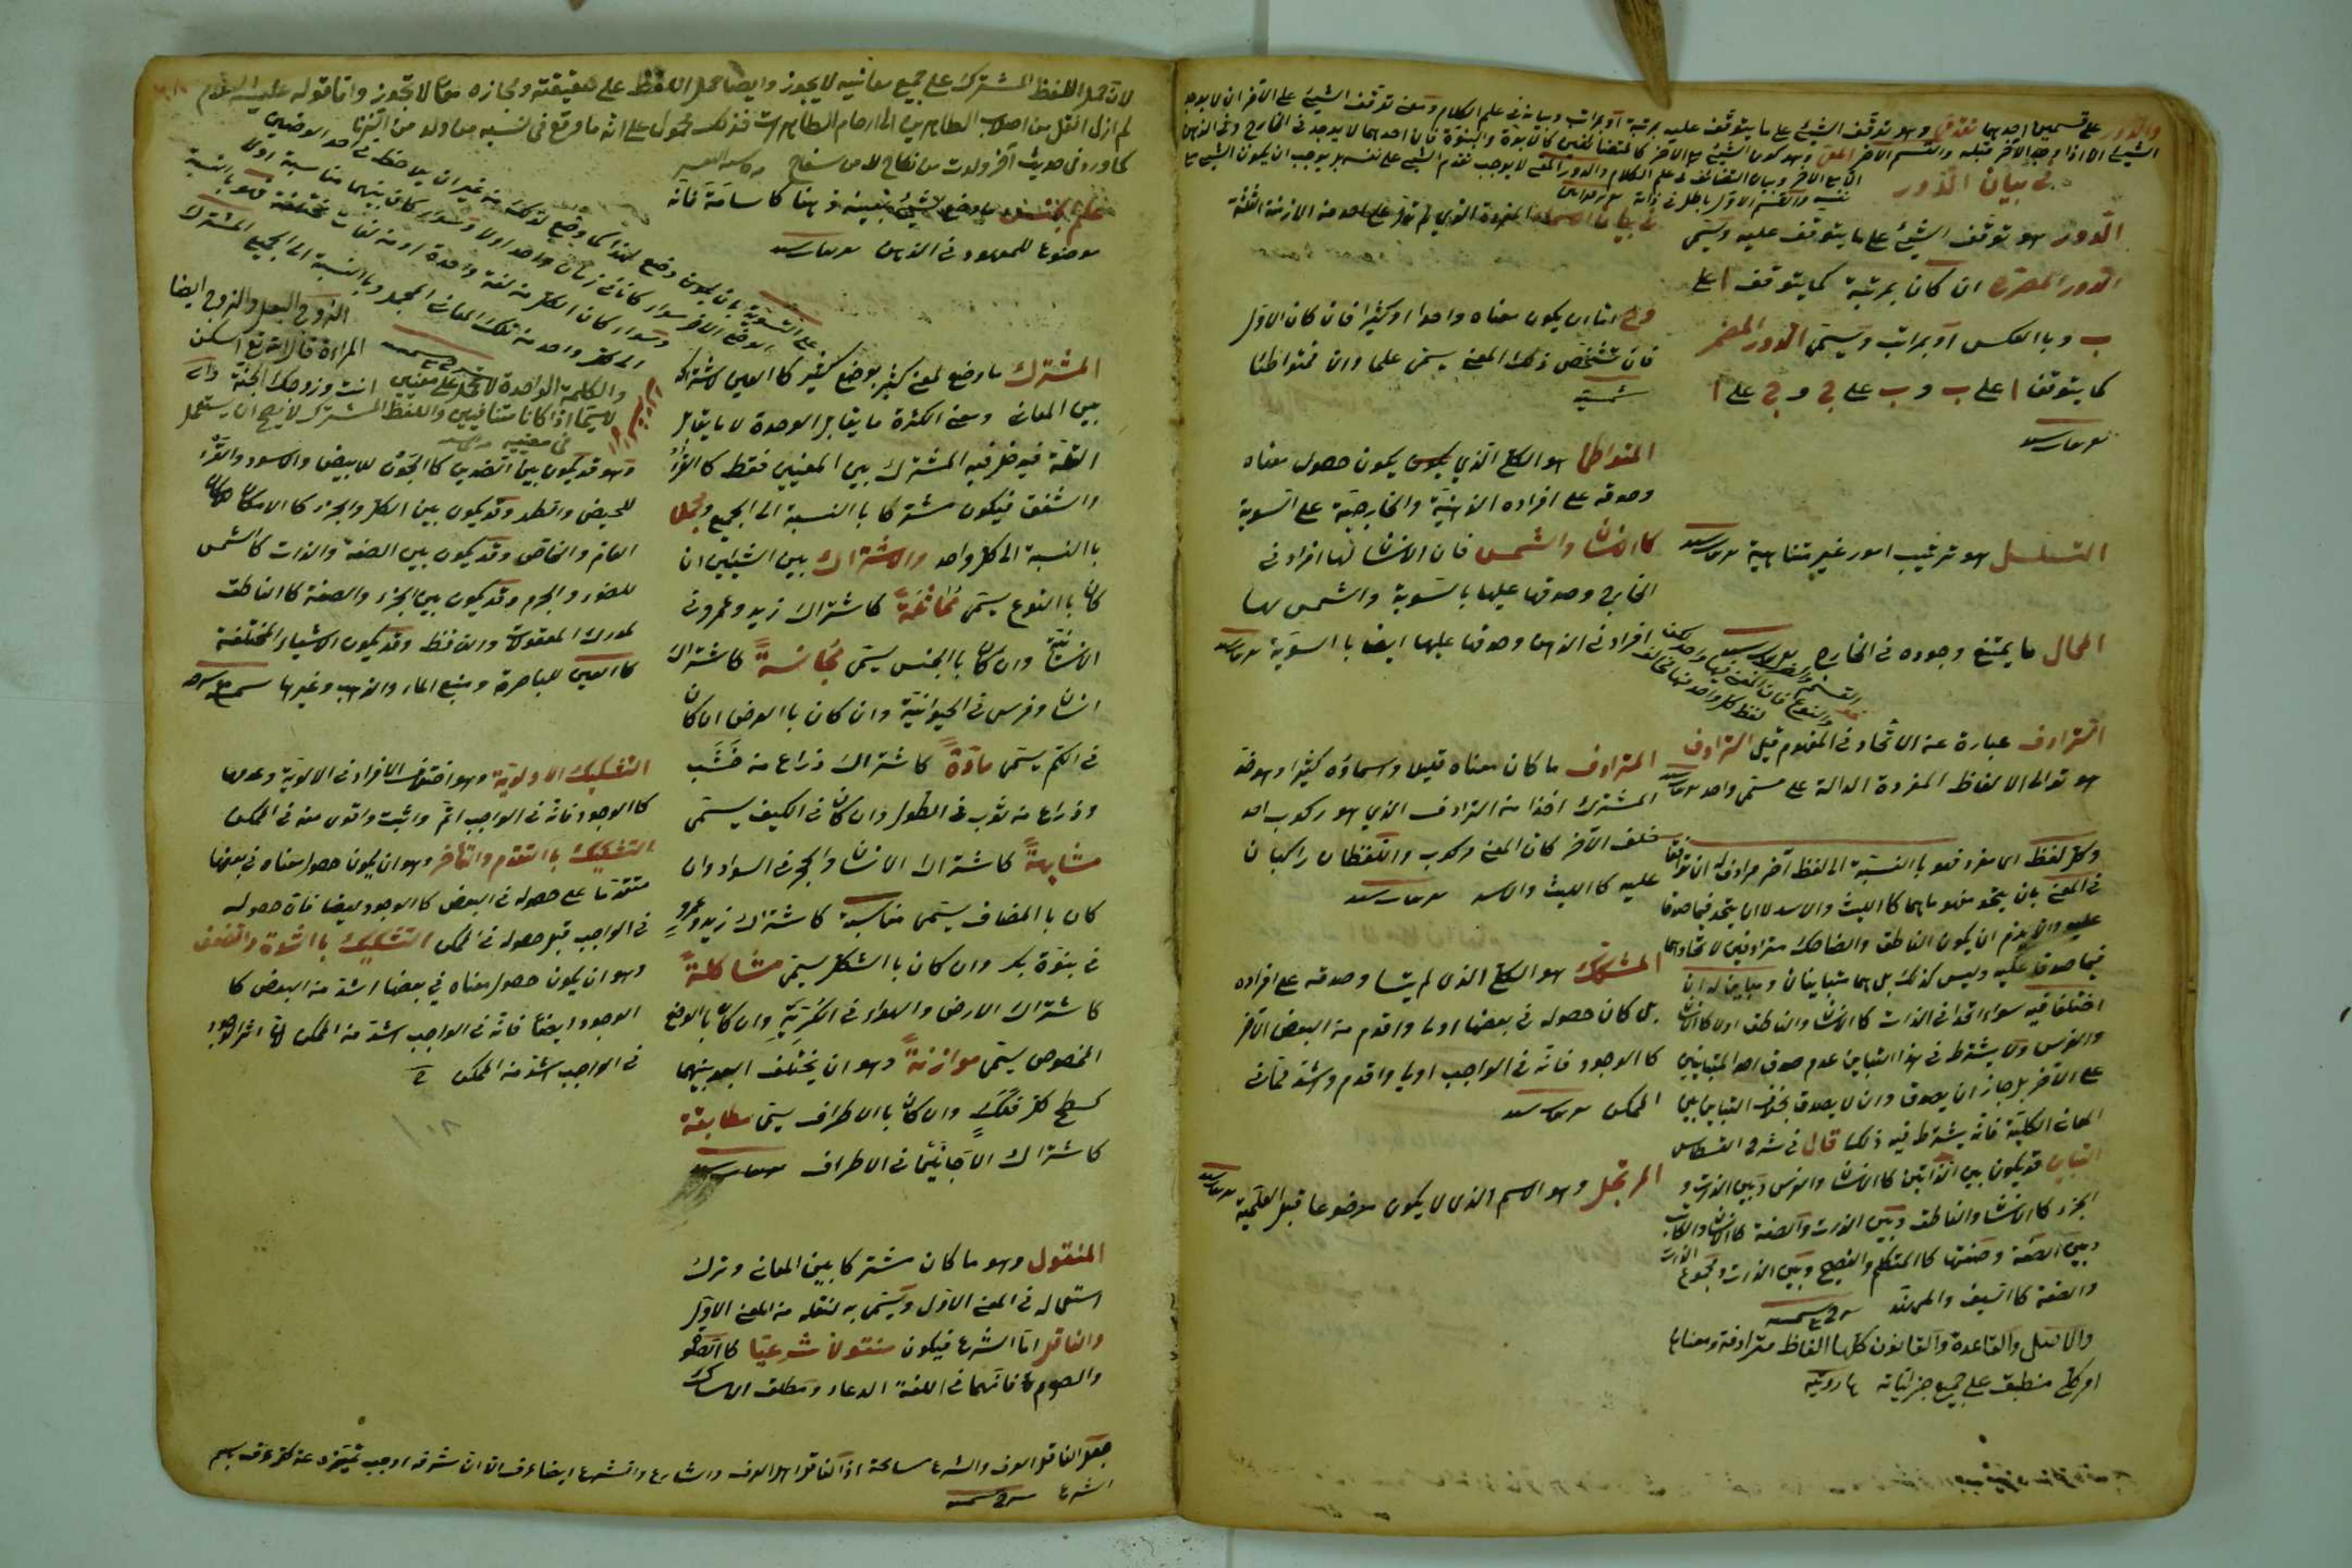 والدور على قسمين احدهما تقدمى وهو توقف الشيئ على ما يتوقف عليه بمرتبة او بمراتب وبيانه فى علم الكلام ومعنى توقف الشيئ على الآخر ان لا يوجد
الشيئ الا اذا وجد الآخر قبله والقسم الآخر المعى وهو كون الشيئ مع الآخر كالمتضائفين كالابوة والبنوة فان احدهما لا يوجد فى الخارج وفى الذهن
الا مع الآخر وبيان التضائف فى علم الكلام والدور المعى لا يوجب تقدم الشيئ على نفسه بل يوجب ان يكون الشيئ مع
نفسه والقسم الاول باطل
فى بيان الدور
الدور هو توقف الشيئ على ما يتوقف عليه ويسمى
الدور المصرح ان كان بمرتبة كما يتوقف ا على
ب وبالعكس او بمراتب ويسمى الدور المضمر
كما يتوقف ا على ب و ب على ج و ج على ا
التسلسل هو ترتيب امور غير متناهية
المحال ما يمتنع وجوده فى الخارج
الترادف عبارة عن الاتحاد فى المفهوم قيل الترادف
هو توالى الالفاظ المفردة الدالة على مسمى واحد
وكل لفظ اى مفرد فهو بالنسبة الى لفظ آخر مرادف له ان توافقا
فى المعنى بان يتحد مفهوماهما كالليث والاسد لا ان يتحد فيما صدقا
عليه والا يلزم ان يكون الناطق والضاحك مترادفين لاتحادهما
فيما صدقا عليه وليس كذلك بل هما متباينان ومباين له ان
اختلفا فيه سواء اتحدا فى الذات كالانسان والناطق اولا كالانسان
والفرس ولا يشترط فى هذا التباين عدم صدق احد المتباينين
على الآخر بل جاز ان يصدق وان لا يصدق بخلاف التباين بين
المعانى الكلية فانه يشترط فيه ذلك قال فى شرح القسطاس
التباين قد يكون بين الذاتين كالانسان والفرس وبين الذات و
الجزء كالانسان والناطق وبين الذات والصفة كالانسان والكاتب
وبين الصفة وصفتها كالمتكلم والفصيح وبين الذات ومجموع الذات
والصفة كالسيف والمهند
والاصل والقاعدة والقانون كلها الفاظ مترادفة ومعناها
امر كلى منطبق على جميع جزئياته
فى بيان الاسماء المفردة الذي لم تدل على احد من الازمنة الثلثة
وهى اما ان يكون معناه واحدا او كثيرا فان كان الاول
فان تشخص ذلك المعنى يسمى علما وان فمتواطئا
المتواطئ هو الكلى الذي يكون حصول معناه
وصدقه على افراده الذهنية والخارجية على السوية
كالانسان والشمس فان الانسان لها افراد فى
الخارج وصدقها عليها بالسوية والشمس لها
افراد فى الذهن وصدقها عليها ايضا بالسوية
المترادف ما كان معناه قليلا واسماؤه كثيرا وهو ضد
المشترك اخذا من الترادف الذي هو ركوب احد
خلف الآخر كان المعنى مركوب واللفظان راكبان
عليه كالليث والاسد
المشكك هو الكلى الذى لم يتساو صدقه على افراده
بل كان حصوله فى بعضها اولى واقدم من البعض الآخر
كالوجود فانه فى الواجب اولى واقدم واشد مما فى
الممكن
المرتجل وهو الاسم الذى لا يكون موضوعا قبل العلمية
لان حمل اللفظ المشترك على جميع معانيه لا يجوز وايضا حمل اللفظ على حقيقته ومجازه معا لا تجوز واما قوله عليه السلام
لم ازل انقل من اصلاب الطاهرين الى ارحام الطاهرات فذلك محمول على انه ما وقع فى نسبه من ولد من الزنا
كما ورد فى حديث آخر ولدت من نكاح لا من سفاح
علم الجنس ما وضع لشيئ بعينه ذهنا كاسامة فانه
موضوع للمعهود فى الذهن
المشترك ما وضع لمعنى كثير بوضع كثير كالعين لاشتراكه
بين المعانى ومعنى الكثرة ما يقابل الوحدة لا ما يقابل
القلة فيدخل فيه المشترك بين المعنيين فقط كالقرء
والشفق فيكون مشتركا بالنسبة الى الجميع ومجملا
بالنسبة الى كل واحد والاشتراك بين الشيئين ان
كان بالنوع يسمى مماثلة كاشتراك زيد وعمرو فى
الانسانية وان كان بالجنس يسمى مجانسة كاشتراك
انسان وفرس فى الحيوانية وان كان بالعرض ان كان
فى الكم يسمى مادة كاشتراك ذراع من خشب
وذراع من ثوب فى الطول وان كان فى الكيف يسمى
مشابهة كاشتراك الانسان والحجر فى السواد وان
كان بالمضاف يسمى مناسبة كاشتراك زيد وعمرو
فى بنوة بكر وان كان بالشكل يسمى مشاكلة
كاشتراك الارض والهواء فى الكرية وان كان بالوضع
المخصوص يسمى موازنة وهو ان يختلف البعد بينهما
كسطح كل فلك وان كان بالاطراف يسمى مطابقة
كاشتراك الاجانين فى الاطراف
المنقول وهو ما كان مشتركا بين المعانى وترك
استعماله فى المعنى الاول ويسمى به لنقله من المعنى الاول
والناقل اما الشرع فيكون منقولا شرعيا كالصلوة
والصوم فانهما فى اللغة الدعاء ومطلق الامساك
الزوج البعل والزوج ايضا
المراة قال الله تعالى اسكن
انت وزوجك الجنة
والكلمة الواحدة لا تحمل على معنيين
لا سيما اذا كانا متنافيين واللفظ المشترك لا يصح ان يستعمل
فى معنييه
وهو قد يكون بين الضدين كالجون للابيض والاسود والقرء
للحيض والطهر وقد يكون بين الكل والجزء كالامكان
العام والخاص وقد يكون بين الصفة والذات كالشمس
للضوء والجرم وقد يكون بين الجزء والصفة كالناطق
لمدرك المعقولات واللافظ وقد يكون الاشياء المختلفة
كالعين للباصرة ومنبع الماء والذهب وغيرها
التشكيك الاولوية وهو اختلاف الافراد فى الاولوية وعدمها
كالوجود فانه فى الواجب اتم واثبت واقوى منه فى الممكن
التشكيك بالتقدم والتأخر وهو ان يكون حصول معناه فى بعضها
متقدما على حصوله فى البعض كالوجود ايضا فان حصوله
فى الواجب قبل حصوله فى الممكن التشكيك بالشدة والضعف
وهو ان يكون حصول معناه في بعضها اشد من البعض كا
لوجود ايضا فانه فى الواجب اشد من الممكن لان اثر الوجود
فى الواجب اشد من الممكن
جعل الناقل العرف والشرع مسامحة اذ الناقل اهل العرف والشارع